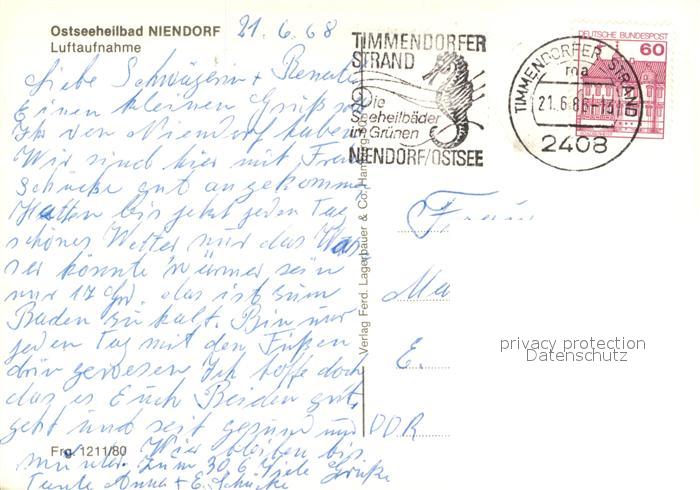 Ostseeheilbad NIENDORF
Luftaufnahme
21.6.68
Liebe Schwägerin + Renate
Einen kleinen Gruß
Ihr von Niendorf haben
Wir sind hier mit Frau
Schücke gut angekommen
Hatten bis jetzt jeden Tag
schönes Wetter nur das Was
ser könnte wärmer sein
nur 17 Gr. das ist zum
Baden zu kalt. Bin nur
jeden Tag mit den Füßen
drin gewesen Ich hoffe doch
das es Euch Beiden gut
geht und seit gesund und
munter. Wir bleiben bis
zum 30.6 Viele Grüße
Tante Anna + E. Schücke
Frg. 1211/80
Verlag Ferd. Lagerbauer & Co. Hamburg
TIMMENDORFER
STRAND
Die
Seeheilbäder
im Grünen
NIENDORF/OSTSEE
TIMMENDORFER STRAND
ma
21.6.86-13
2408
DEUTSCHE BUNDESPOST
60
Frau
Ma
E.
DDR
privacy protection
Datenschutz